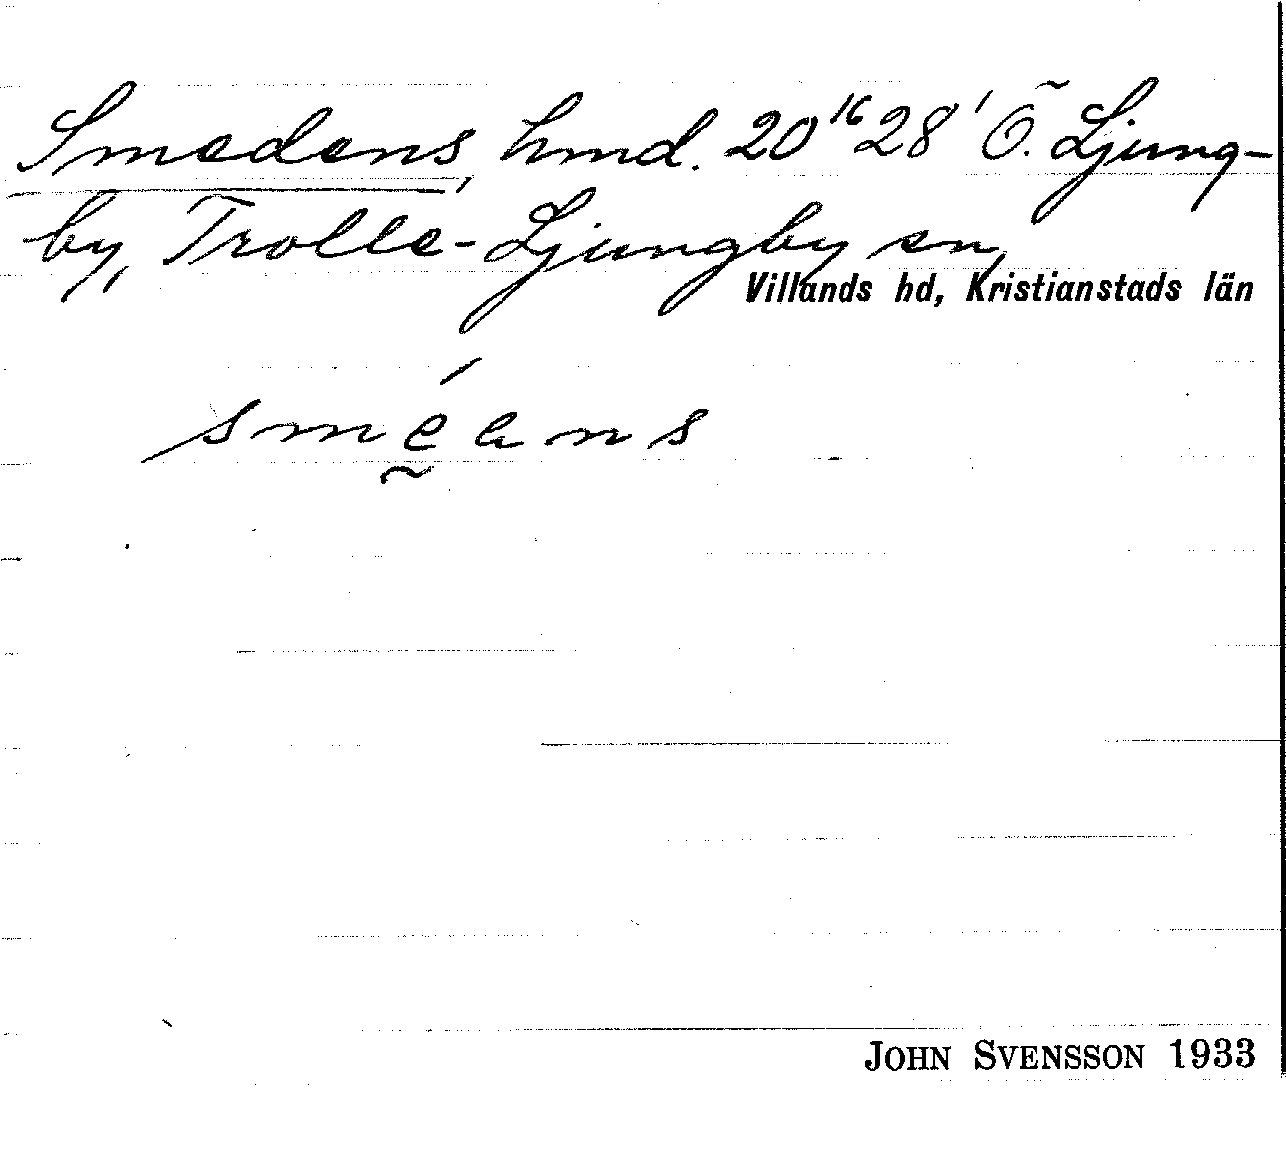 Smedens, hmd. 20¹⁶ 28¹ Ö. Ljung-
by, Trolle-Ljungby sn,
Villands hd, Kristianstads län
smḛ́ans
JOHN SVENSSON 1933